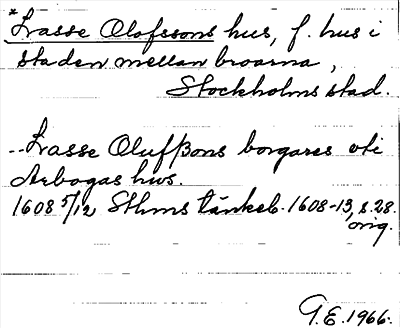 *Lasse Olofssons hus, f. hus i
staden mellan broarna,
Stockholms stad.
--Lasse Olufßons borgares uti
Arbogas hws.
1608 5/12 Sthms tänkeb. 1608-13, s. 28.
orig.
G.E. 1966.